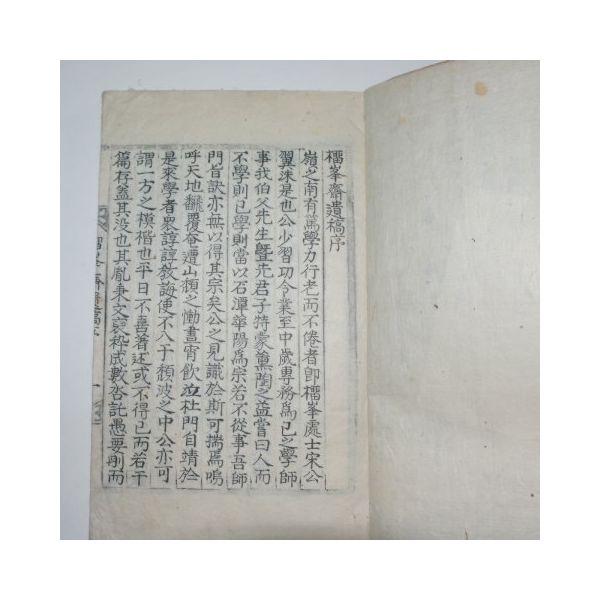 橊峯齋遺稿序
嶺之南有篤學力行老而不倦者卽橊峯處士宋公
翼洙是也公少習功令業至中歲專務爲己之學師
事我伯父先生曁先君子特蒙薰陶之益嘗曰人而
不學則已學則當以石潭華陽爲宗若不從事吾師
門旨訣亦無以得其宗矣公之見識於斯可揣爲嗚
呼天地飜覆奄遭山頹之慟晝宵飮泣杜門自靖於
是來學者衆諄諄敎誨使不入于頹波之中公亦可
謂一方之模楷也平日不喜著述或不得已而若干
篇存盖其没也其胤秉文裒粹成數咨託愚要刪而